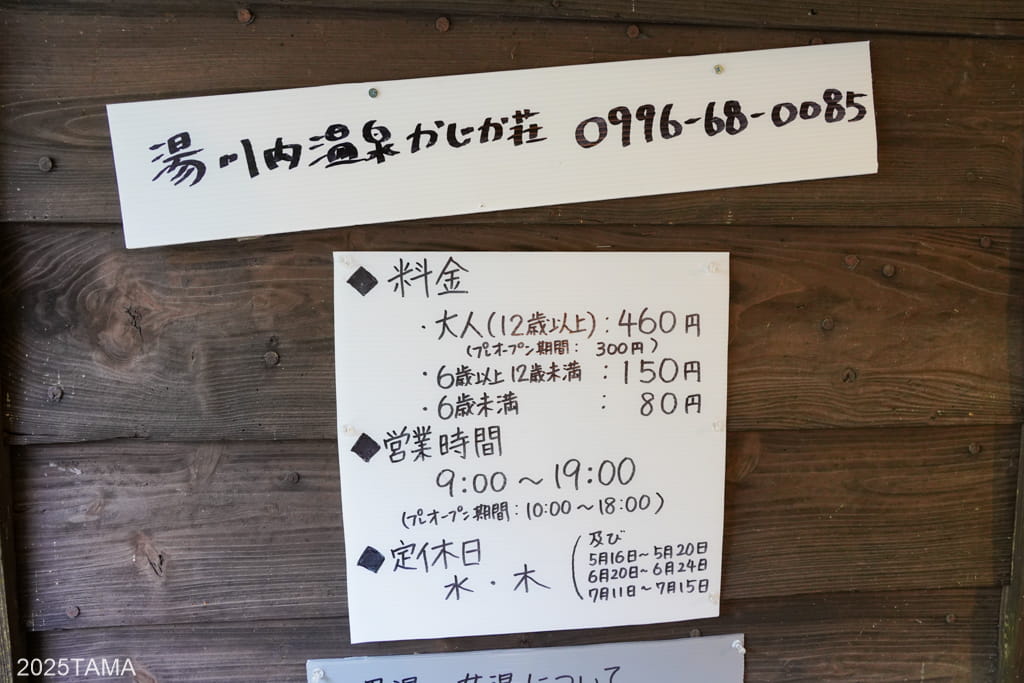 湯川内温泉かじか荘 0996-68-0085
◆料金
・大人(12歳以上):460円
(プレオープン期間: 300円)
・6歳以上12歳未満 :150円
・6歳未満 : 80円
◆営業時間
9:00~19:00
(プレオープン期間:10:00~18:00)
◆定休日
水・木
(及び
5月16日~5月20日
6月20日~6月24日
7月11日~7月15日
について
2025TAMA